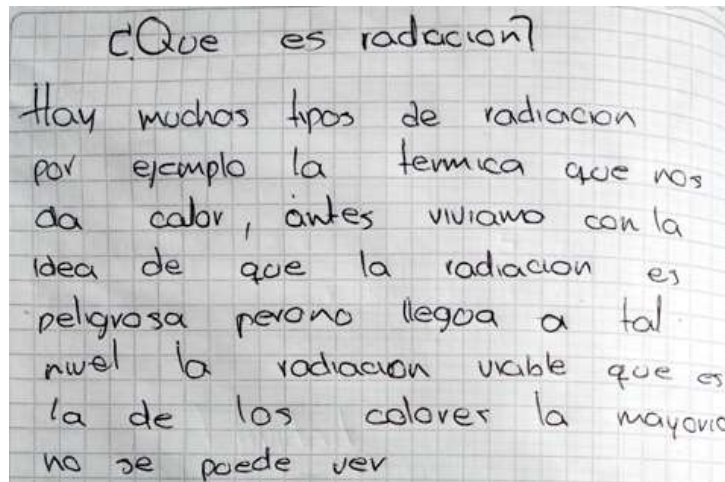 ¿Que es radiacion?
Hay muchos tipos de radiacion
por ejemplo la termica que nos
da calor, antes viviamo con la
idea de que la radiacion es
peligrosa perono llegoa a tal
nivel la radiacion viable que es
la de los colores la mayoria
no se puede ver